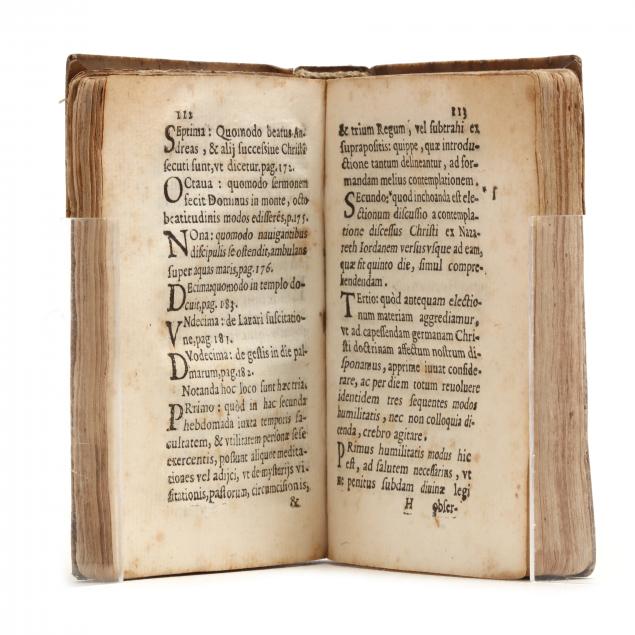 112
SEptima: Quomodo beatus An-
dreas, & alij successiue Christũ
secuti sunt, vt dicetur, pag. 172.
OCtaua: quomodo sermonem
fecit Dominus in monte, octo
beatitudinis modos edisserẽs, p. 175.
NOna: quomodo nauigantibus
discipulis se ostendit, ambulans
super aquas maris, pag. 176.
DEcima: quomodo in templo do-
cuit, pag. 183.
VNdecima: de Lazari suscitatio-
ne, pag 181.
DVodecima: de gestis in die pal-
marum, pag. 182.
Notanda hoc loco sunt hæc tria.
PRimo: quòd in hac secunda
hebdomada iuxta temporis fa-
cultatem, & vtilitatem personæ sese
exercentis, possunt aliquot medita-
tiones vel adijci, vt de mysterijs vi-
sitationis, pastorum, circumcisionis,
&
113
& trium Regum, vel subtrahi ex
suprapositis: quippe, quæ introdu-
ctione tantum delineantur, ad for-
mandam melius contemplationem.
SEcundo; quod inchoanda est ele-
ctionum discussio a contempla-
tione discessus Christi ex Naza-
reth Iordanem versus vsque ad eam,
quæ fit quinto die, simul compre-
hendendam.
TErtio: quòd antequam electio-
num materiam aggrediamur,
vt ad capessendam germanam Chri-
sti doctrinam affectum nostrum di-
sponamus, apprime iuuat conside-
rare, ac per diem totum reuoluere
identidem tres sequentes modos
humilitatis, nec non colloquia di-
cenda, crebro agitare.
PRimus humilitatis modus hic
est, ad salutem necessarius, vt
me penitus subdam diuinæ legi
H obser-